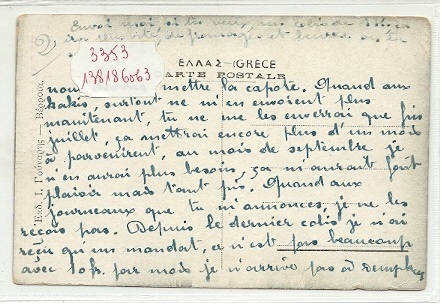 Envoi moi si tu veux, un colis de
de fromage et beurre ou tu
2)
3353
138186063
ΕΛΛΑΣ-GRECE
CARTE POSTALE
Έκδ. Ι. Γούναρης — Βέρροια.
nou mettre la capote. Quand aux
kakis, surtout ne m'en envoient plus
maintenant, tu ne me les enverrai que fin
juillet, ça mettrai encore plus d'un mois
à parvenirent, au mois de septembre je
n'en aurai plus besoin, ça m'aurait fait
plaisir mais tant pis. Quand aux
journeaux que tu m'annonces, je ne les
reçois pas. Depuis le dernier colis je n'ai
reçu qu'un mandat, ce n'est pas beaucoup
avec 10 frs par mois je n'arrive pas à remplir